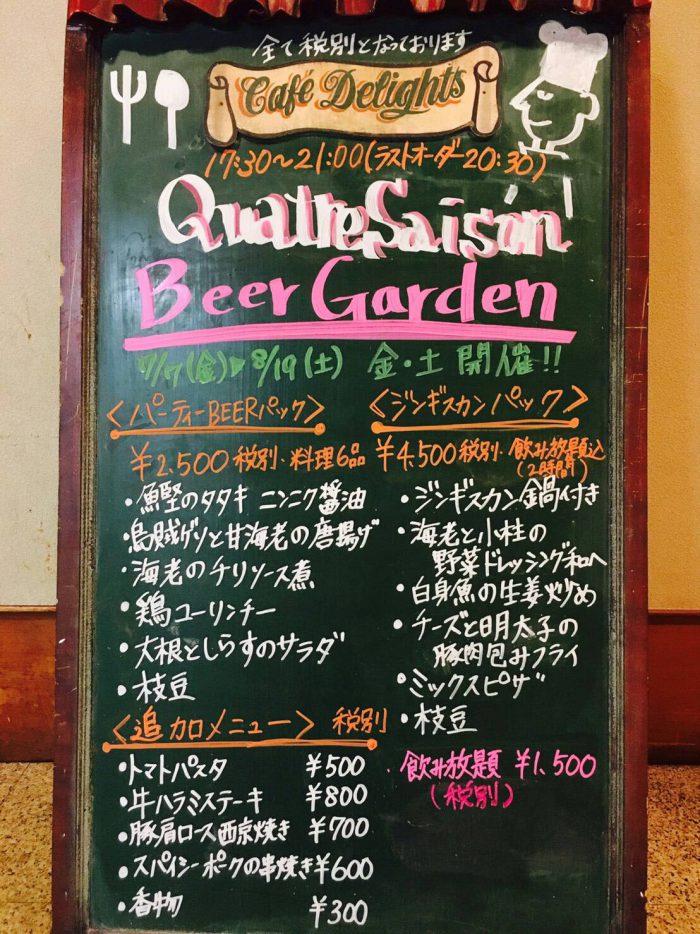 全て税別となっております
Café Delights
17:30～21:00(ラストオーダー20:30)
Quatre Saison
Beer Garden
7/7(金)▶8/19(土) 金・土 開催!!
<パーティーBEERパック>
¥2,500税別・料理6品
・鰹のタタキ ニンニク醤油
・烏賊ゲソと甘海老の唐揚げ
・海老のチリソース煮
・鶏ユーリンチー
・大根としらすのサラダ
・枝豆
<ジンギスカンパック>
¥4,500税別・飲み放題込
(2時間)
・ジンギスカン鍋付き
・海老と小柱の
野菜ドレッシング和へ
・白身魚の生姜炒め
・チーズと明太子の
豚肉包みフライ
・ミックスピザ
・枝豆
<追加メニュー> 税別
・トマトパスタ ¥500
・牛ハラミステーキ ¥800
・豚肩ロース西京焼き ¥700
・スパイシーポークの串焼き ¥600
・香物 ¥300
・飲み放題 ¥1,500
(税別)